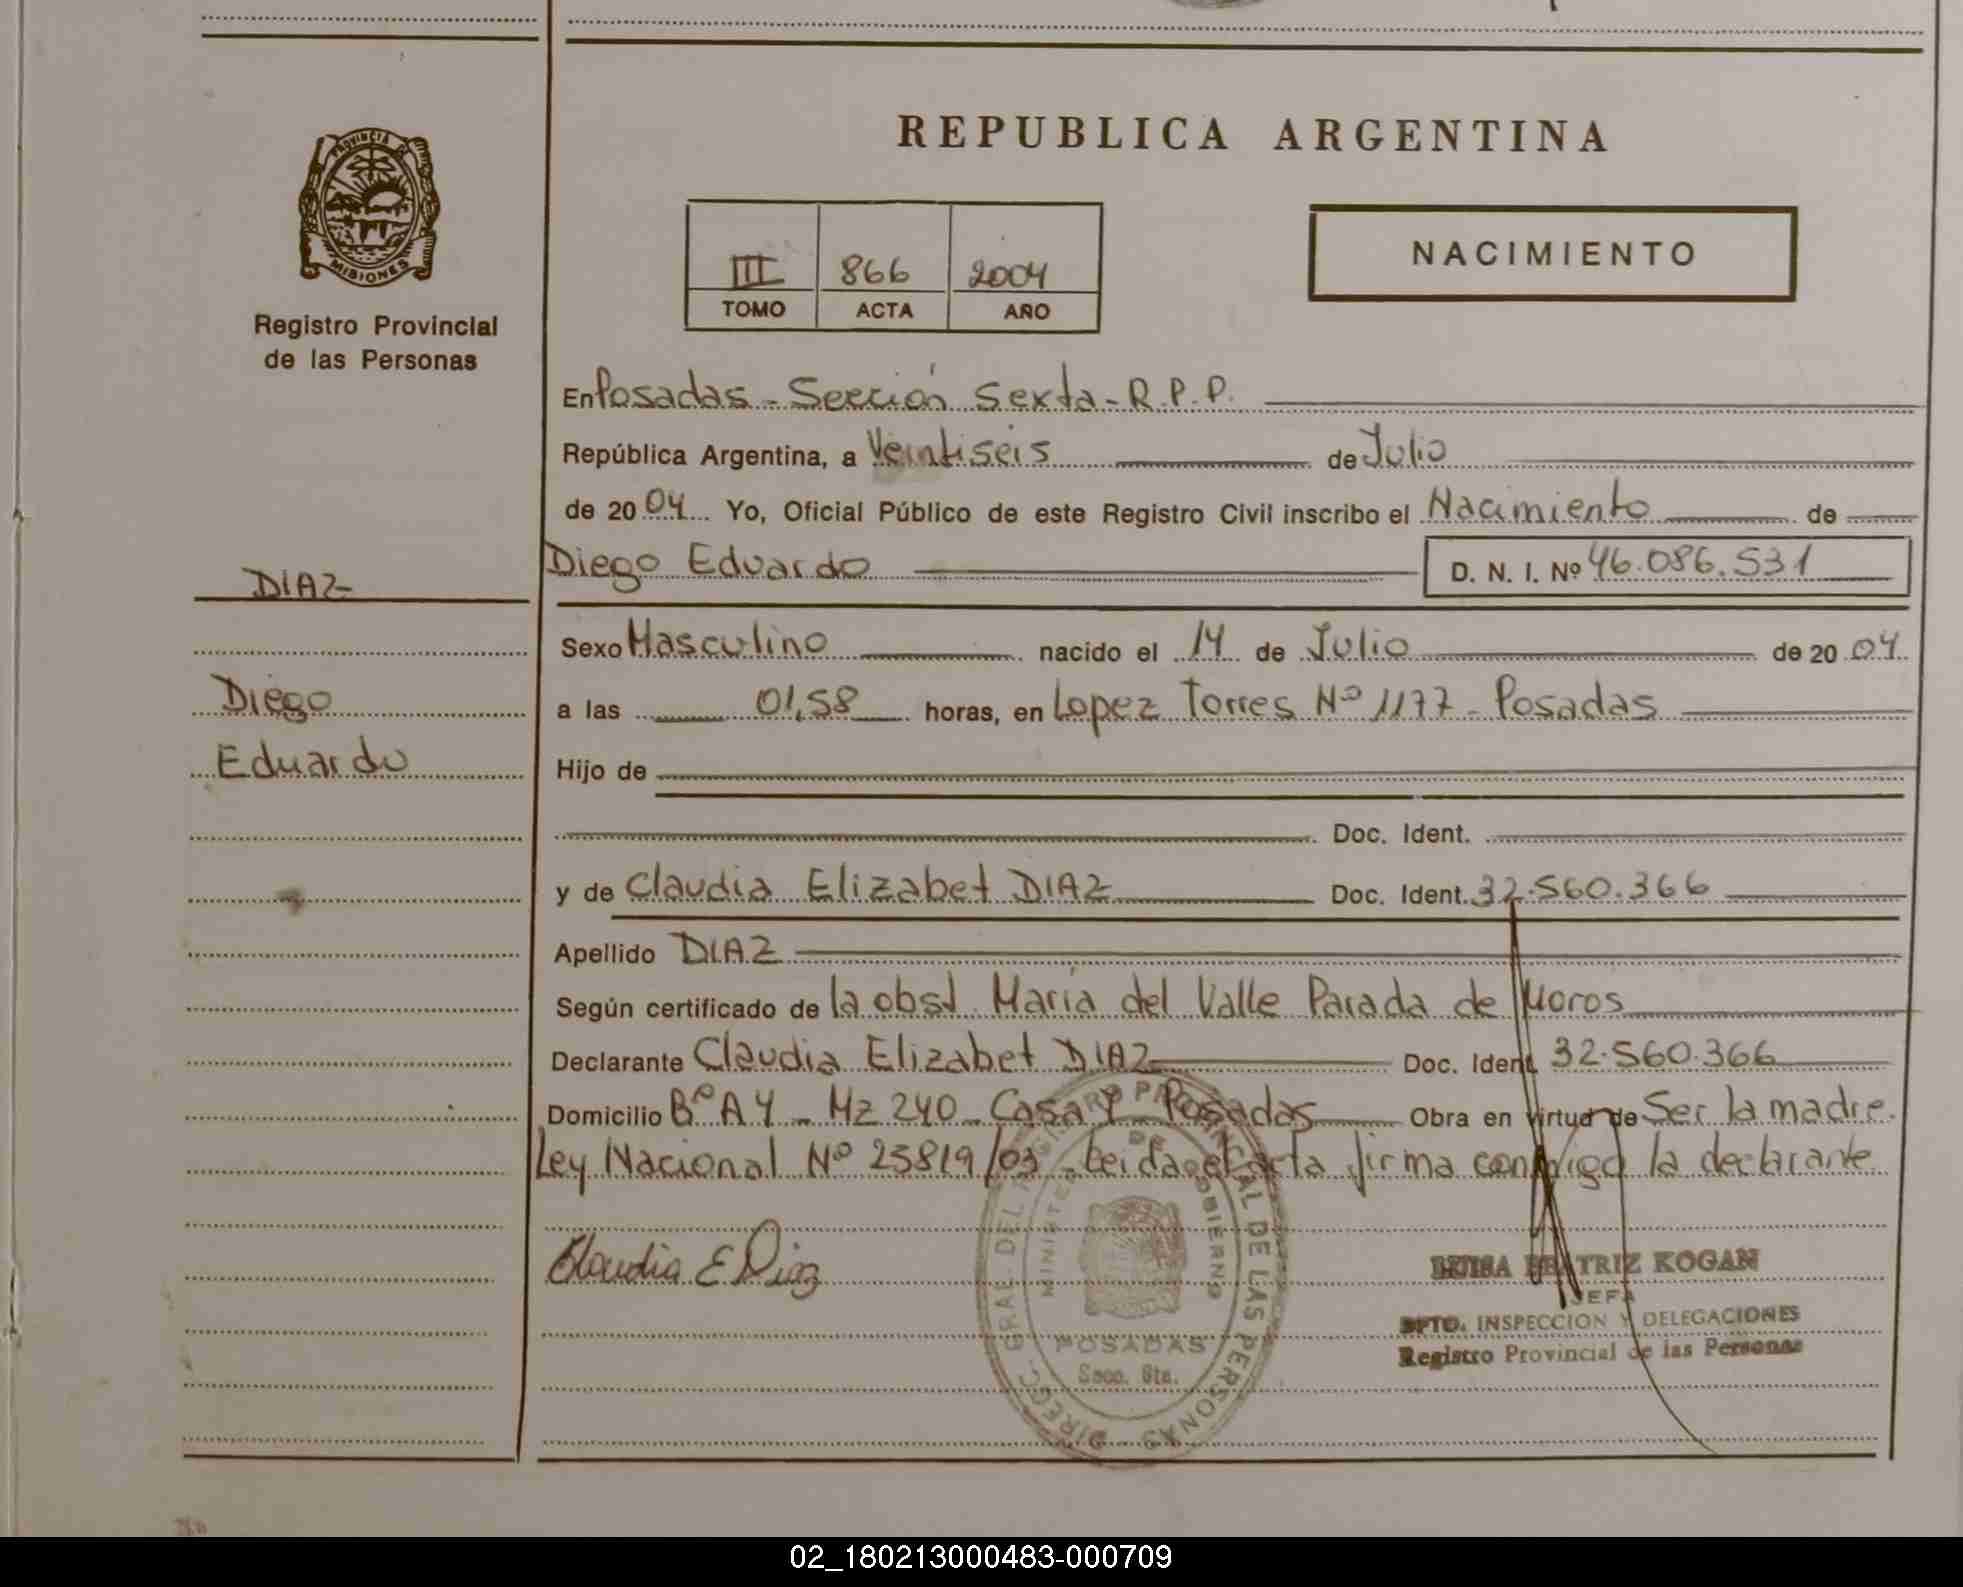 REPUBLICA ARGENTINA
PROVINCIA DE
MISIONES
Registro Provincial
de las Personas
III 866 2004
TOMO ACTA AÑO
NACIMIENTO
En Posadas - Sección Sexta - R.P.P.
República Argentina, a Veintiseis de Julio
de 2004 Yo, Oficial Público de este Registro Civil inscribo el Nacimiento de
Diego Eduardo D. N. I. Nº 46.086.531
DIAZ
Diego
Eduardo
Sexo Masculino nacido el 14 de Julio de 2004
a las 01,58 horas, en Lopez Torres Nº 1177 - Posadas
Hijo de
Doc. Ident.
y de Claudia Elizabet DIAZ Doc. Ident. 32.560.366
Apellido DIAZ
Según certificado de la obst. María del Valle Parada de Moros
Declarante Claudia Elizabet DIAZ Doc. Ident. 32.560.366
Domicilio Bº A4 - Mz 240 - Casa Posadas Obra en virtud de Ser la madre.
Ley Nacional Nº 25819/03 - Leida el acta firma conmigo la declarante
Claudia E Diaz
DIRECC. GRAL DEL REGISTRO PROVINCIAL DE LAS PERSONAS
MINISTERIO DE GOBIERNO
POSADAS
Secc. 6ta.
LUISA BEATRIZ KOGAN
JEFA
DPTO. INSPECCION Y DELEGACIONES
Registro Provincial de las Personas
02_180213000483-000709